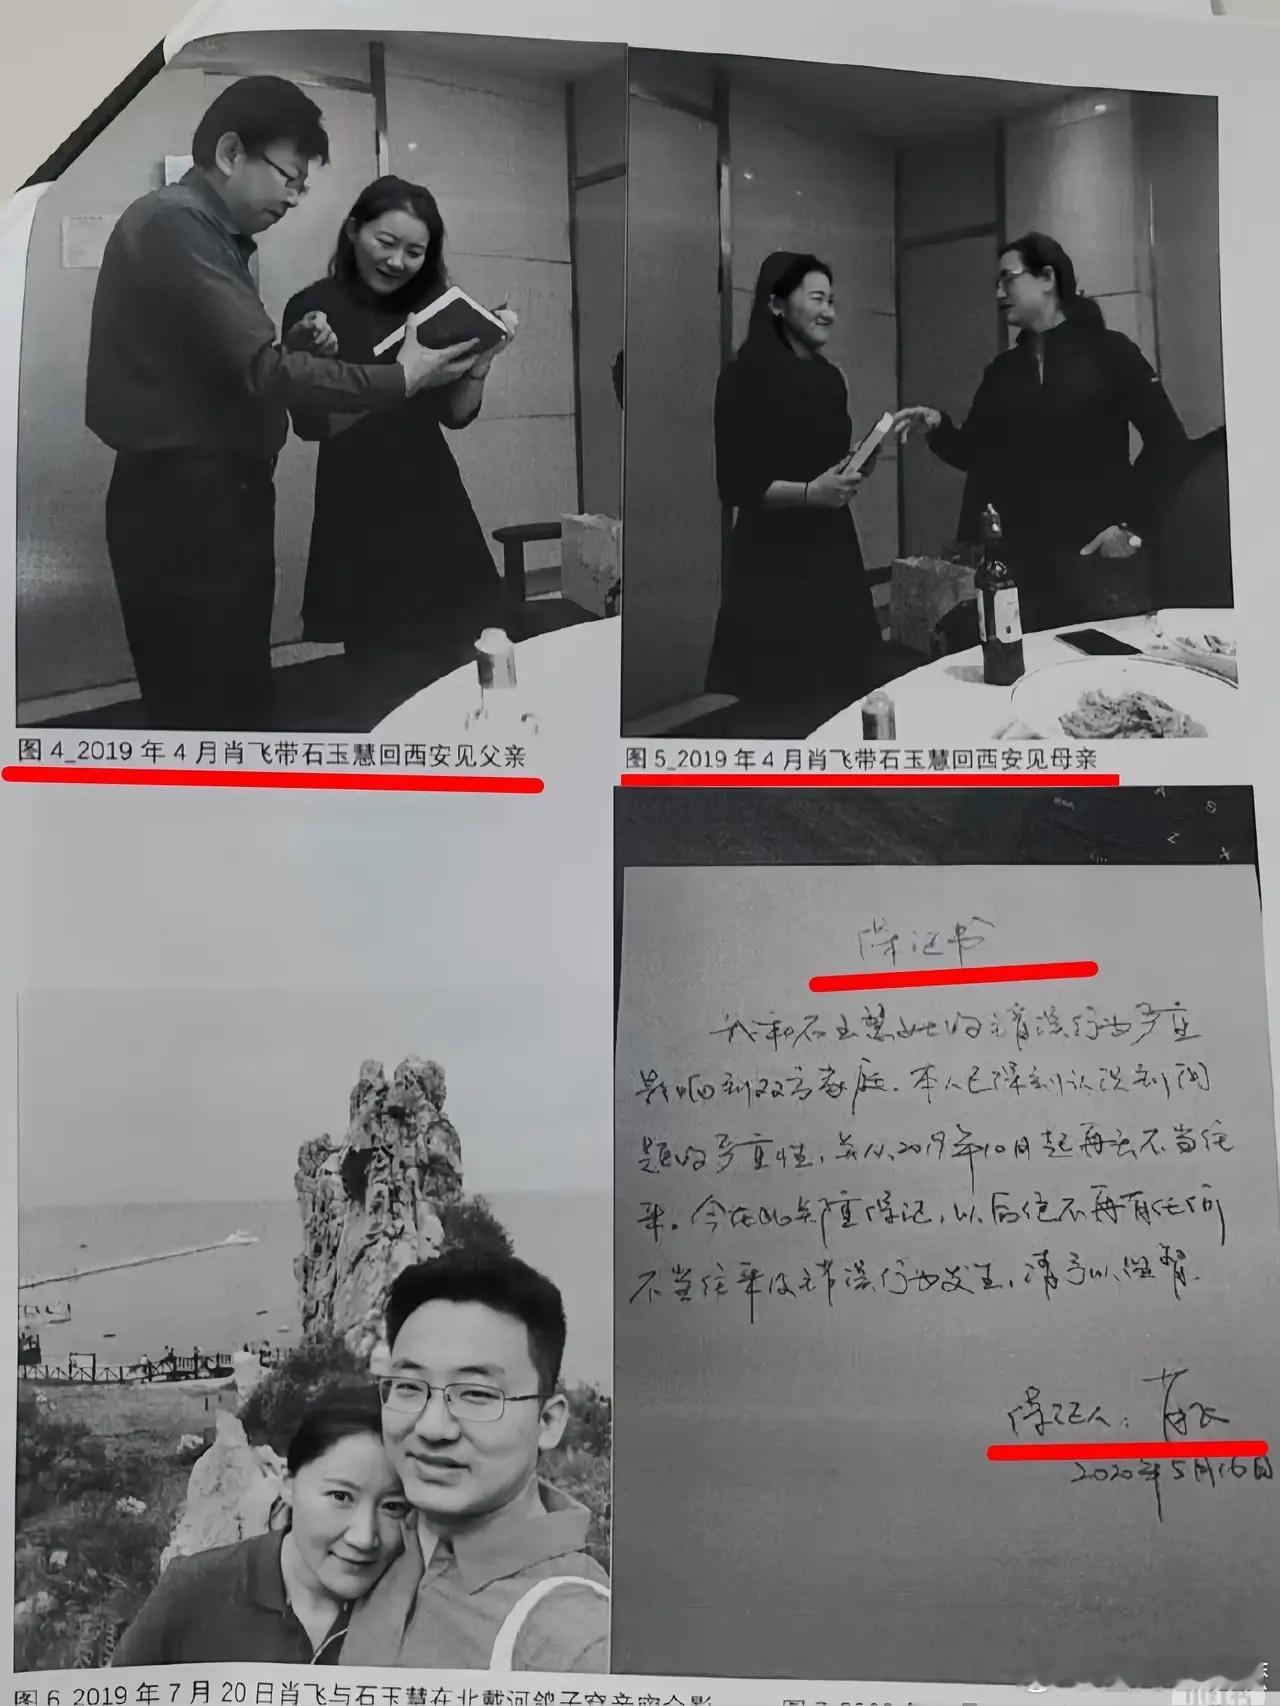 图 4_2019 年 4 月肖飞带石玉慧回西安见父亲
图 5_2019 年 4 月肖飞带石玉慧回西安见母亲
保证书
我和石玉慧女士的错误行为严重
影响到双方家庭.本人已深刻认识到问
题的严重性,并从2019年10月起再无不当往
来.今在此郑重保证,以后绝不再有任何
不当往来及错误行为发生,请予以监督.
保证人:肖飞
2020年5月16日
图 6_2019 年 7 月 20 日肖飞与石玉慧在北戴河鸽子窝亲密合影